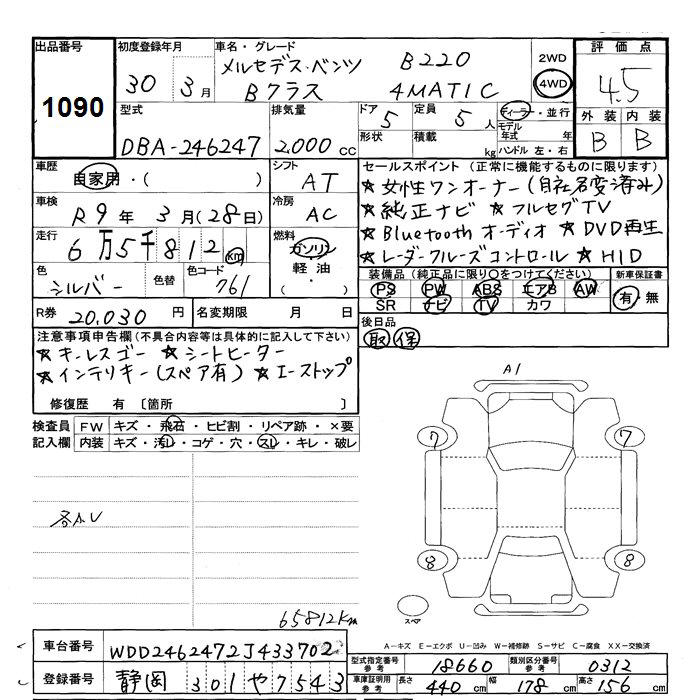 出品番号 初度登録年月 車名・グレード 評価点
1090 30年 3月 メルセデス・ベンツ B220 2WD 4.5
Bクラス 4MATIC 4WD
型式 排気量 ドア 定員 ディーラー・並行 外装 内装
DBA-246247 2,000cc 5 5人 モデル年式 年 B B
形状 積載 kg ハンドル 左・右
車歴 シフト セールスポイント (正常に機能するものに限ります)
自家用・( ) AT ★女性ワンオーナー(自社名変済み)
車検 冷房 ★純正ナビ ★フルセグTV
R9年 3月(28日) AC ★Bluetoothオーディオ ★DVD再生
走行 燃料 ★レーダークルーズコントロール ★HID
6万5千812km ガソリン
軽油・
色 色替 色コード 装備品(純正品に限り○をつけてください) 新車保証書
シルバー 761 PS PW ABS エアB AW 有・無
SR ナビ TV カワ
R券 20,030円 名変期限 月 日 後日品
取 保
注意事項申告欄(不具合内容等は具体的に記入して下さい)
★キーレスゴー ★シートヒーター
★インテリキー(スペア有) ★エーストップ
修復歴 有 [箇所 ]
検査員記入欄 FW キズ・飛石・ヒビ割・リペア跡・×要
内装 キズ・汚れ・コゲ・穴・スレ・キレ・破レ
A1
7 7
各AU
8 8
スペア
65812Km
A-キズ E-エクボ U-凹み W-補修跡 S-サビ C-腐食 XX-交換済
車台番号 WDD2462472J433702
型式指定番号 参考 18660 類別区分番号 参考 0312
登録番号 静岡 301 や 7543
車庫証明用 参考 長さ 440cm 幅 178cm 高さ 156cm